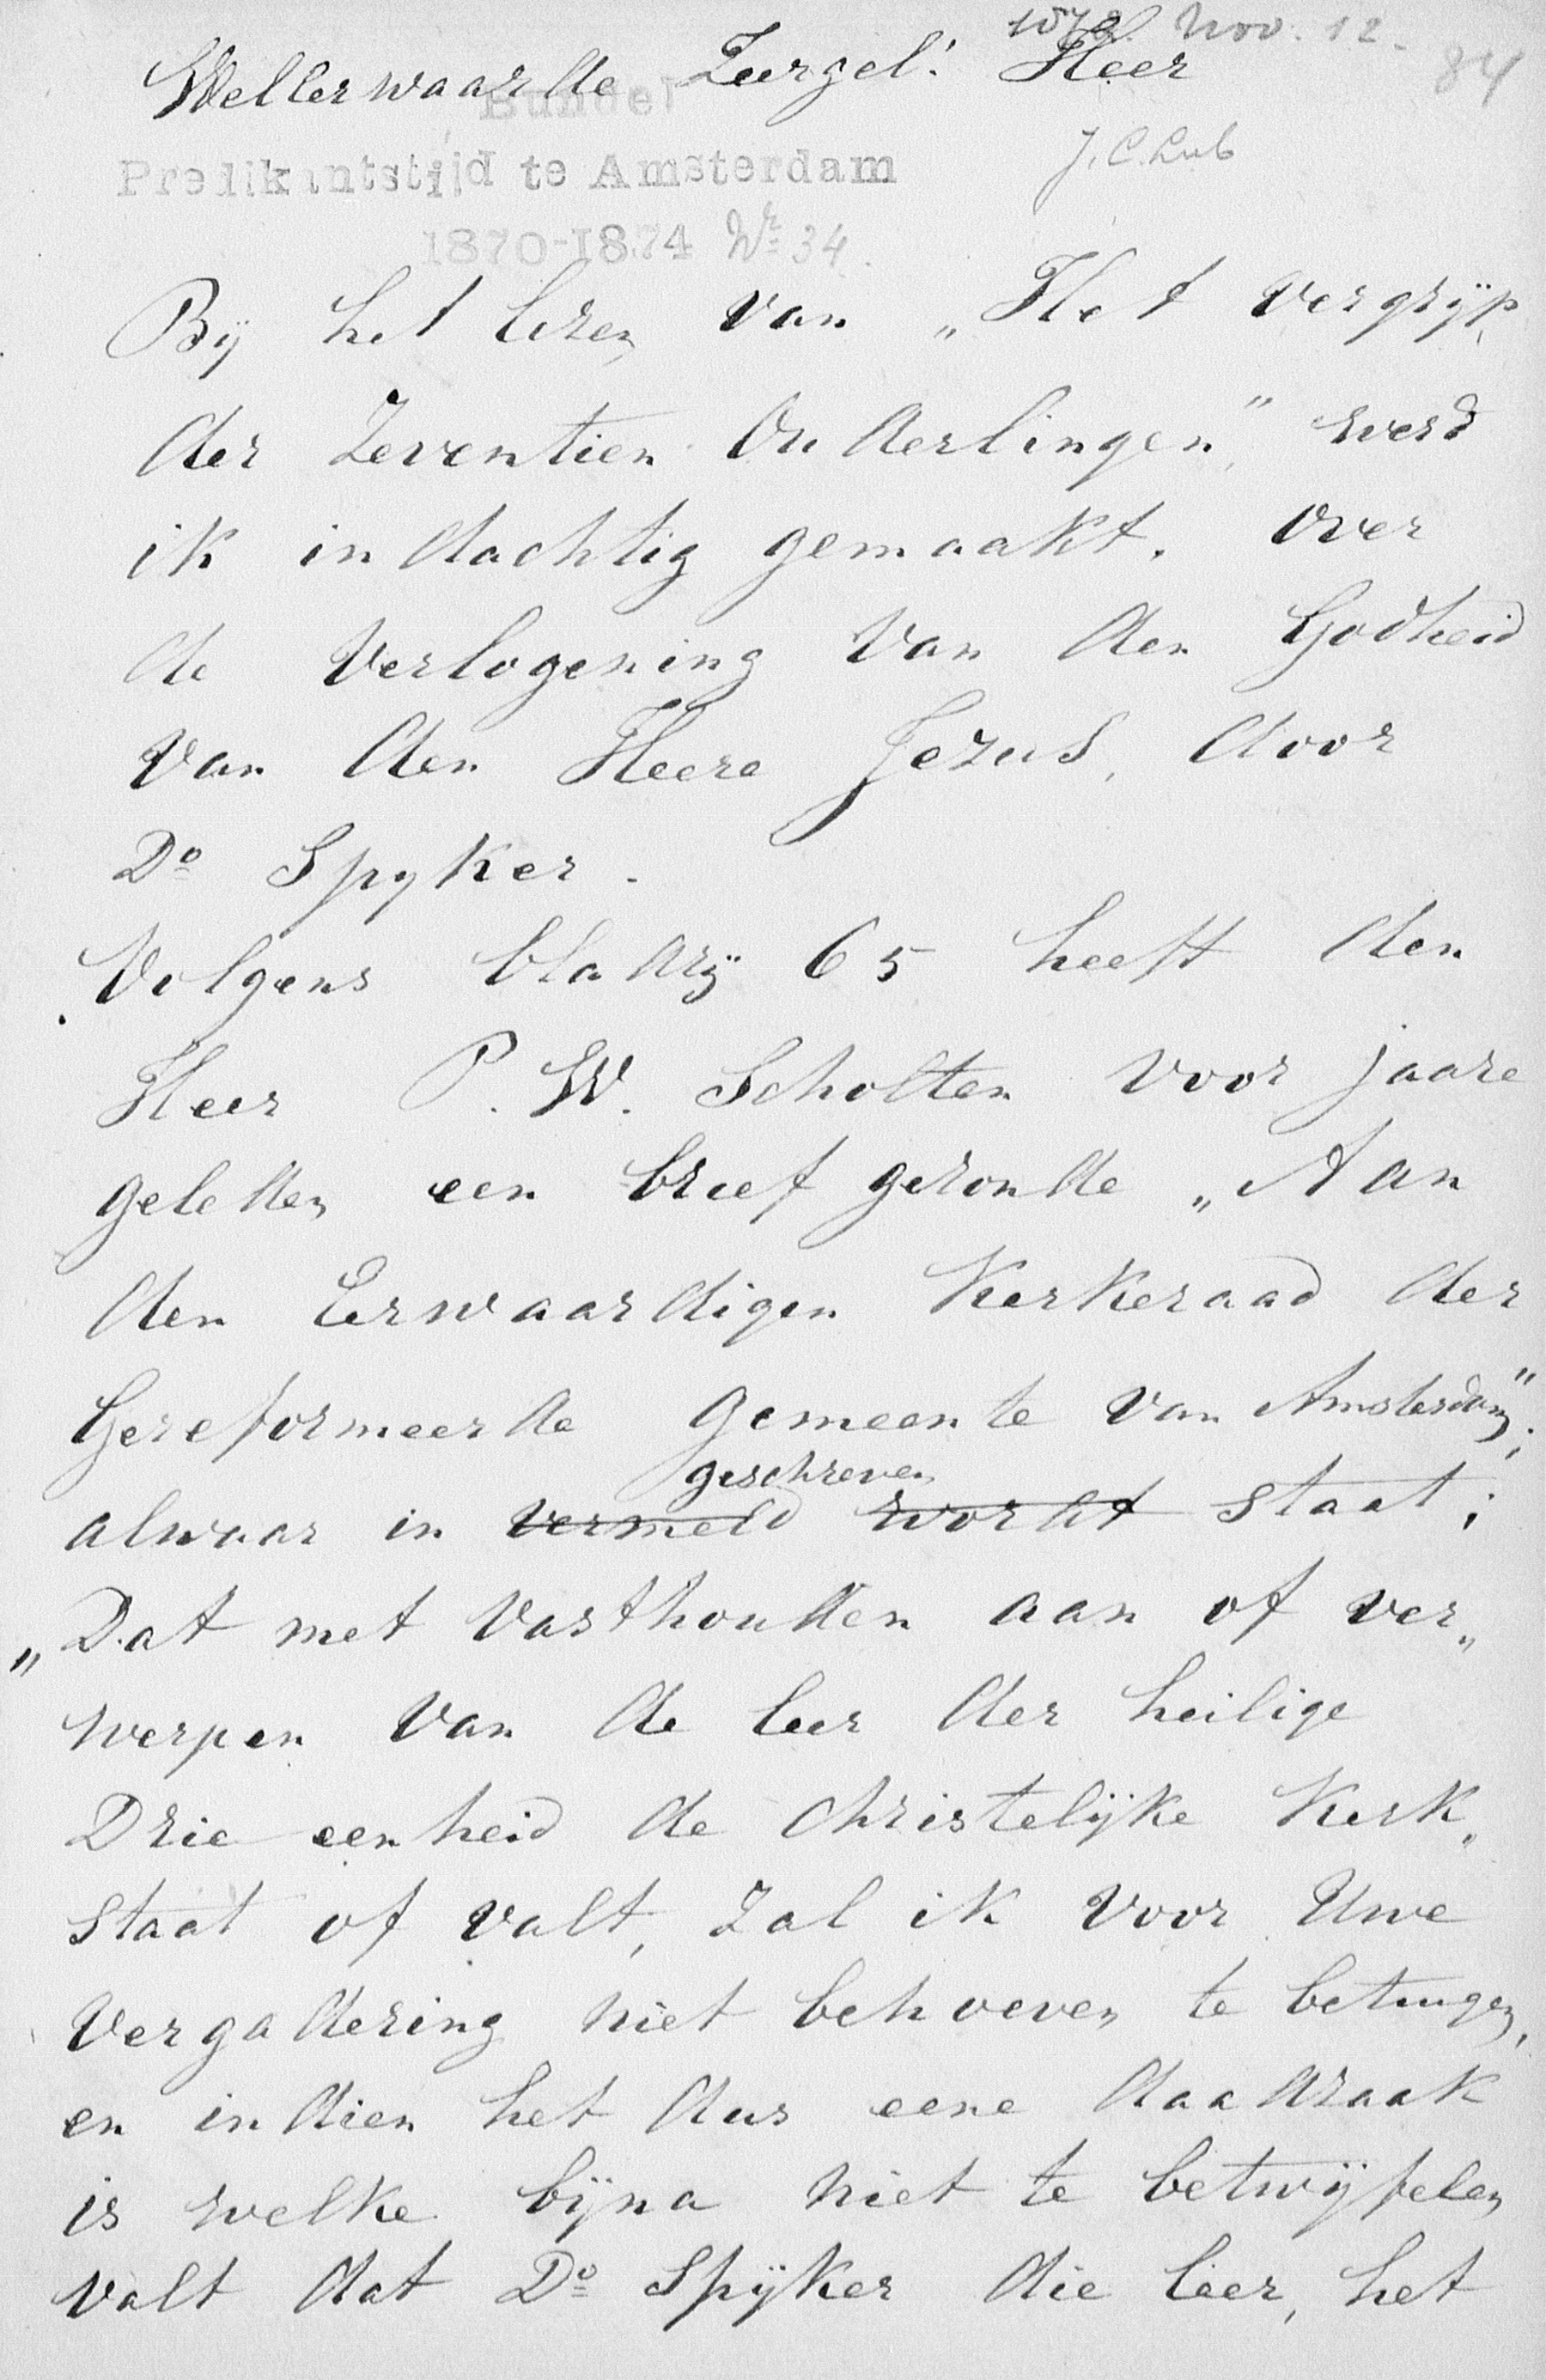 1872 Nov. 12.
84
Wellerwaarde Zeergel! Heer
Bundel
J. C. Lub
Predikantstijd te Amsterdam
1870-1874 Nr 34.
Bij het lezen van „Het vergrijp
der Zeventien Ouderlingen" werd
ik indachtig gemaakt, over
de Verlogening Van den Godheid
Van den Heere Jezus, door
Do Spyker.
Volgens bladzij 65 heeft den
Heer P. W. Scholten voor jaare
geleden een brief gezonde „Aan
den Eerwaardigen Kerkeraad der
Gereformeerde gemeente van Amsterdam";
geschreven
alwaar in vermeld wordt staat;
„Dat met Vasthouden aan of ver„
werpen Van de leer der heilige
Drie eenheid de Christelijke Kerk„
staat of valt, Zal ik voor Uwe
Vergadering niet behoeven te betuigen,
en indien het dus eene daadzaak
is welke bijna niet te betwijfelen
valt dat Do Spijker die leer, het